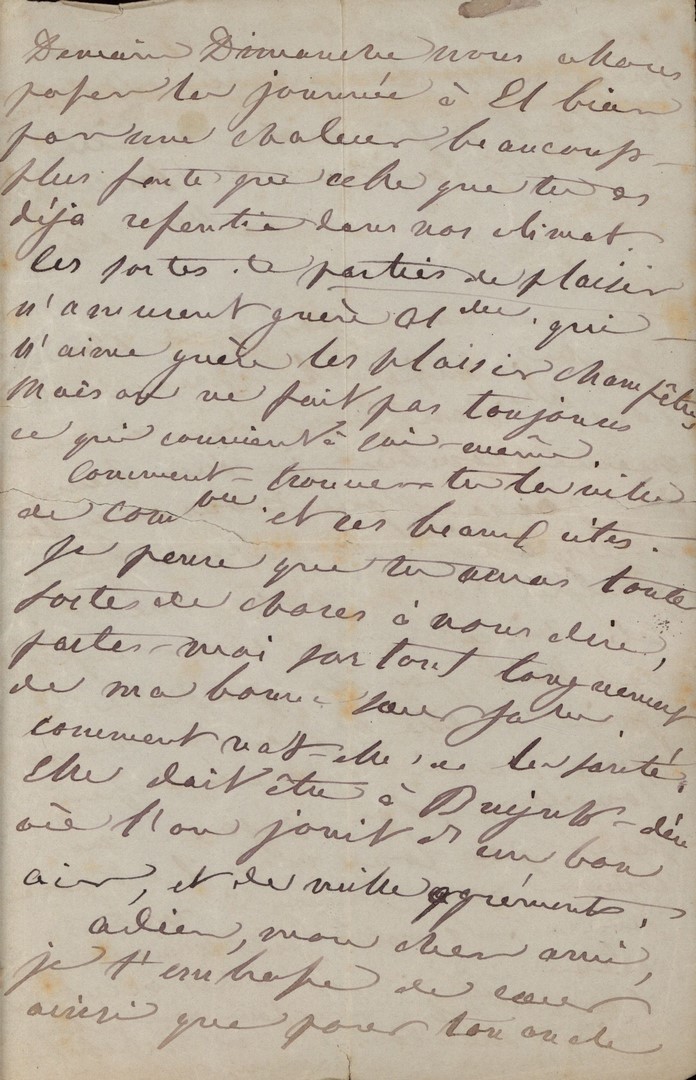 Demain Dimanche nous allons
passer la journée à El biar
par une chaleur beaucoup
plus forte que celle que tu as
déja resentie dans nos climat.
Ces sortes de parties de plaisir
n'amusent guère qui
n'aime guère les plaisir champêtres
Mais on ne fait pas toujours
ce qui convient à soi-même
Comment trouves-tu la ville
de et ses beautés.
Je pense que tu auras toute
sortes de choses à nous dire,
partes-moi surtout longuement
de ma bonne soeur
comment vat-elle de la santé,
Elle doit être à
où l'on jouit d'un bon
air, et de mille agréments.
adieu, mon cher ami,
je t'embrasse de coeur
ainsi que pour ton oncle